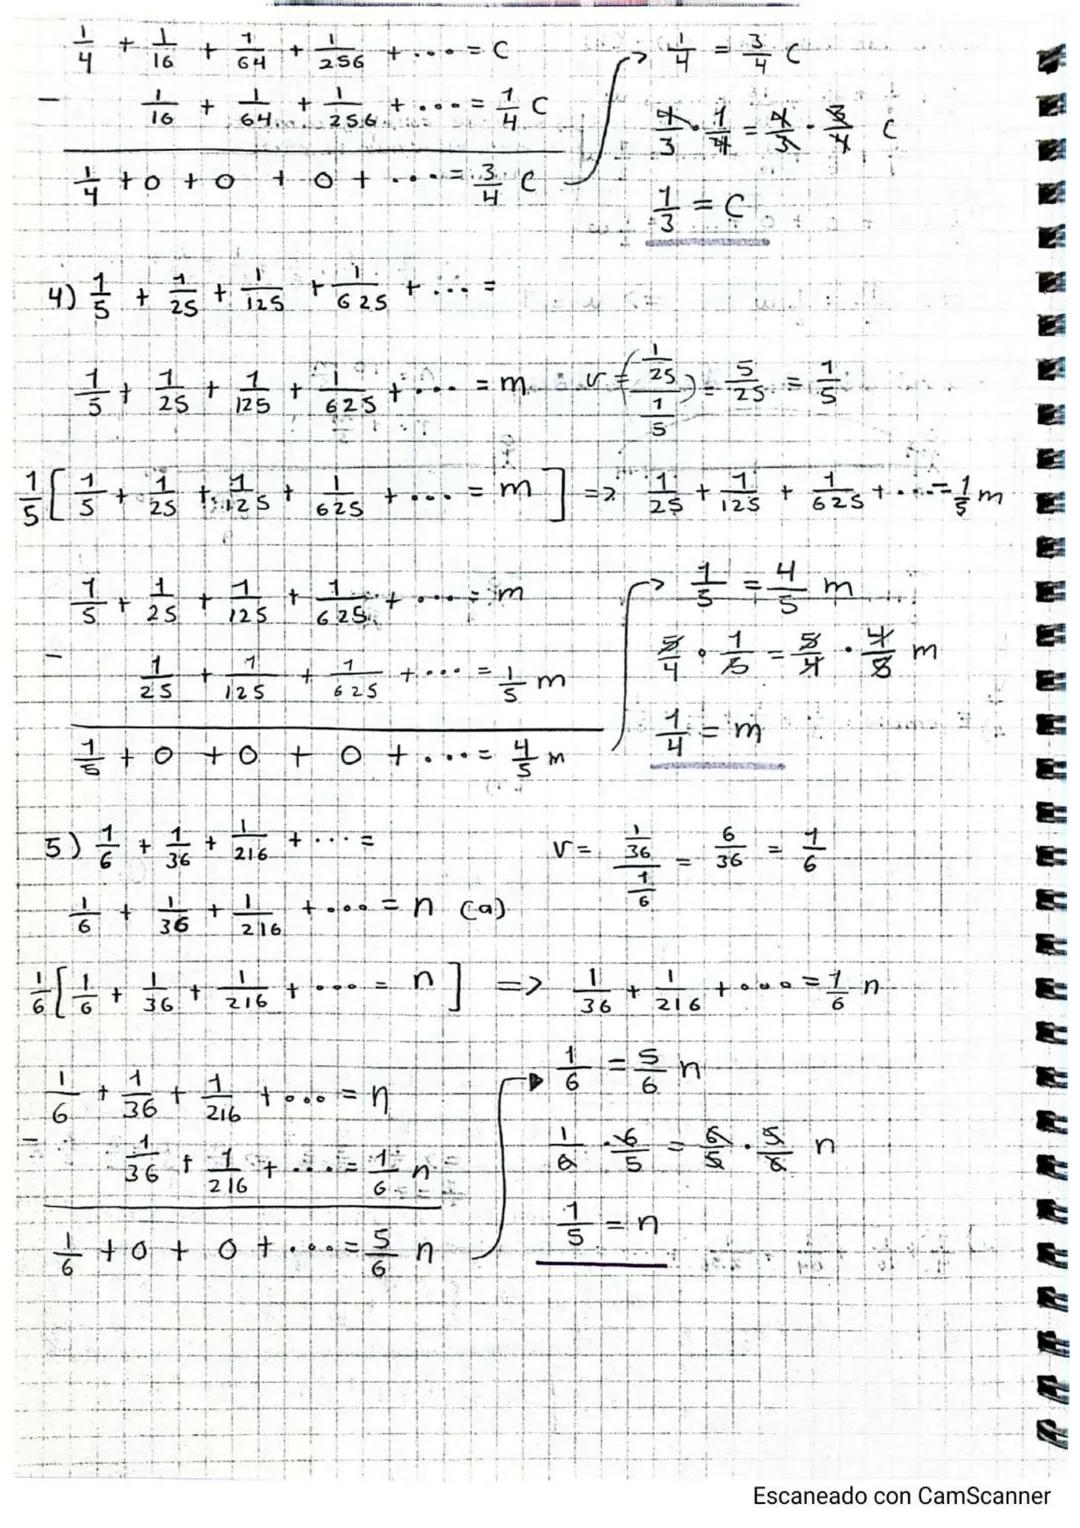 1/4 + 1/16 + 1/64 + 1/256 + .... = C
- 1/16 + 1/64 + 1/256 + ... = 1/4 C
1/4 + 0 + 0 + 0 + ... = 3/4 C
1/4 = 3/4 C
4/3 · 1/4 = 4/3 · 3/4 C
1/3 = C
4) 1/5 + 1/25 + 1/125 + 1/625 + ... =
1/5 + 1/25 + 1/125 + 1/625 + .... = m
r = (1/25 / 1/5) = 5/25 = 1/5
1/5 [ 1/5 + 1/25 + 1/125 + 1/625 + ... = m ] => 1/25 + 1/125 + 1/625 + ... = 1/5 m
1/5 + 1/25 + 1/125 + 1/625 + .... = m
- 1/25 + 1/125 + 1/625 + ... = 1/5 m
1/5 + 0 + 0 + 0 + .... = 4/5 m
1/5 = 4/5 m
5/4 · 1/5 = 5/4 · 4/5 m
1/4 = m
5) 1/6 + 1/36 + 1/216 + ... =
r = 1/36 / 1/6 = 6/36 = 1/6
1/6 + 1/36 + 1/216 + .... = n (a)
1/6 [ 1/6 + 1/36 + 1/216 + .... = n ] => 1/36 + 1/216 + .... = 1/6 n
1/6 + 1/36 + 1/216 + .... = n
- 1/36 + 1/216 + .... = 1/6 n
1/6 + 0 + 0 + .... = 5/6 n
1/6 = 5/6 n
1/6 · 6/5 = 6/5 · 5/6 n
1/5 = n
Escaneado con CamScanner